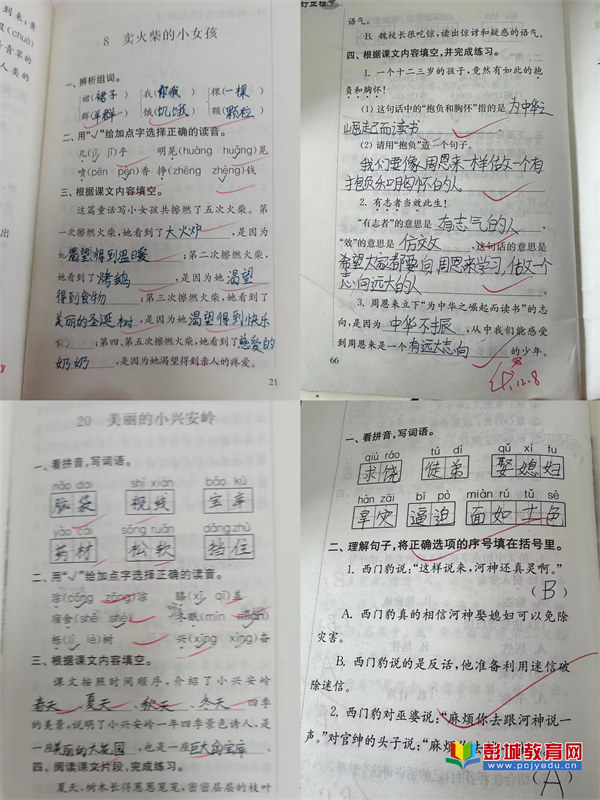 8 卖火柴的小女孩
一、辨析组词。
裙(裙子) 我(你我) 棵(一棵)
群(羊群) 饿(饥饿) 颗(颗粒)
二、用“√”给加点字选择正确的读音。
几(jī jǐ)乎 明晃(huàng huǎng)晃
喷(pēn pèn)香 挣(zhēng zhèng)钱
三、根据课文内容填空。
这篇童话写小女孩共擦燃了五次火柴。第
一次擦燃火柴,她看到了大火炉,是因为
她渴望得到温暖;第二次擦燃火柴,
她看到了烤鹅,是因为她渴望
得到食物;第三次擦燃火柴,她看到了
美丽的圣诞树,是因为她渴望得到快乐
;第四、第五次擦燃火柴,她看到了慈爱的
奶奶,是因为她渴望得到亲人的疼爱。
21
语气。
B. 魏校长很吃惊,读出惊讶和疑惑的语气。
四、根据课文内容填空,并完成练习。
1. 一个十二三岁的孩子,竟然有如此的抱
负和胸怀!
(1) 这句话中的“抱负和胸怀”指的是为中华之
崛起而读书
(2) 请用“抱负”造一个句子。
我们要像周恩来一样做一个有
抱负和胸怀的人
2. 有志者当效此生!
“有志者”的意思是有志气的人,
“效”的意思是仿效,这句话的意思是
希望大家都要向周恩来学习,做一个
志向远大的人
3. 周恩来立下“为中华之崛起而读书”的志
向,是因为中华不振,从中我们能感受
到周恩来是一个有远大志向的少年。
66
12.8
20 美丽的小兴安岭
一、看拼音,写词语。
nǎo dai shì xiàn bǎo kù
脑袋 视线 宝库
yào cái sōng ruǎn dǎng zhù
药材 松软 挡住
二、用“√”给加点字选择正确的读音。
三、根据课文内容填空。
课文按照时间顺序,介绍了小兴安岭
春天、夏天、秋天、冬天四季
的美景,说明了小兴安岭一年四季景色诱人,是
一座美丽的大花园,也是一座巨大的宝库。
四、阅读课文片段,完成练习。
夏天,树木长得葱葱茏茏,密密层层的枝叶
一、看拼音,写词语。
qiú ráo tú dì qǔ xí fu
求饶 徒弟 娶媳妇
hàn zāi bī pò miàn rú tǔ sè
旱灾 逼迫 面如土色
二、理解句子,将正确选项的序号填在括号里。
1. 西门豹说:“这样说来,河神还真灵啊。”
(B)
A. 西门豹真的相信河神娶媳妇可以免除
灾害。
B. 西门豹说的是反话,他准备利用迷信破
除迷信。
2. 西门豹对巫婆说:“麻烦你去跟河神说一
声。”对官绅的头子说:“麻烦
(A)
彭城教育网
www.pcjyedu.cn